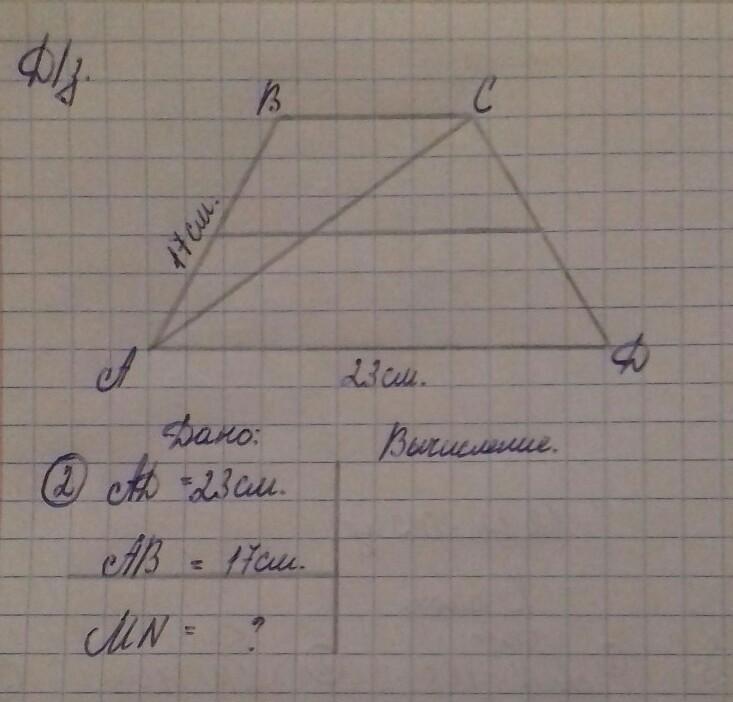 Д/з.
В С
17см.
А Д
23см.
Дано: Вычисление.
2 АД = 23см.
АВ = 17см.
MN = ?